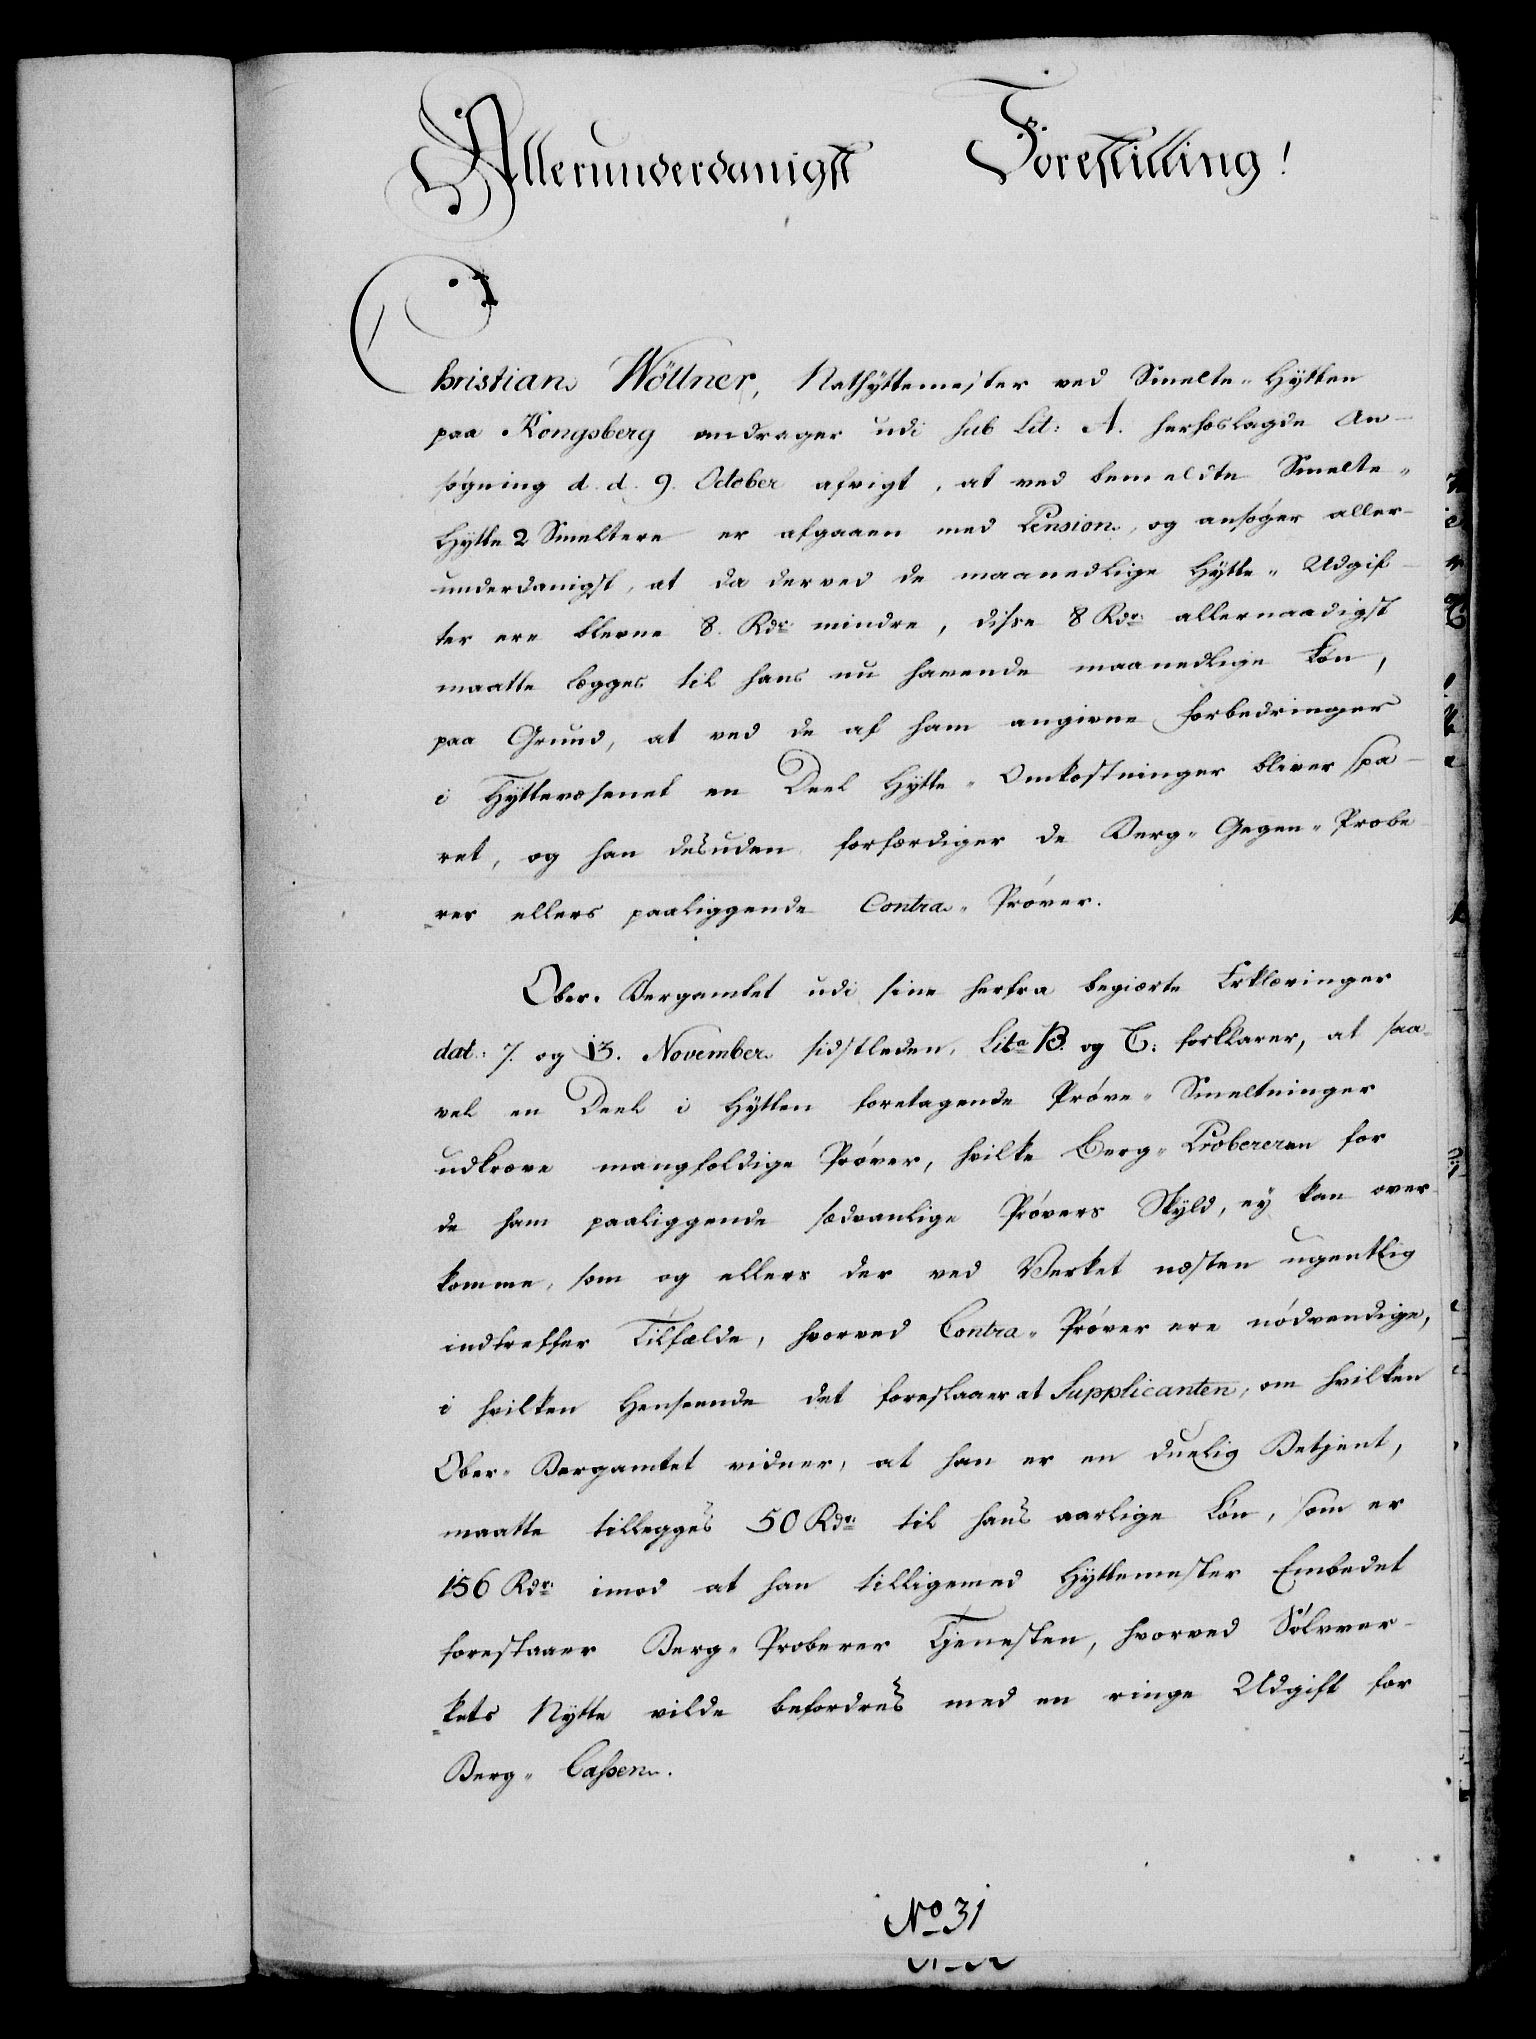 Allerunderdanigst Forestilling!
Christian Wöllner, Nathyttemester ved Smelte-Hytten
paa Kongsberg andrager udi sub Lit: A. herhoslagde An-
søgning d. d. 9. October afvigt, at ved bemeldte Smelte-
Hytte 2 Smeltere er afgaaen med Pension, og ansøger aller-
underdanigst, at da derved de maanedlige Hytte-Udgif-
ter ere blevne 8. Rdr. mindre, disse 8 Rdr. allernaadigst
maatte lægges til hans nu havende maanedlige Løn,
paa Grund, at ved de af ham angivne Forbedringer
i Hyttevæsenet en Deel Hytte-Omkostninger bliver spa-
ret, og han desuden forfærdiger de Berg-Gegen-Probe
rer ellers paaliggende Contra-Prøver.
Ober-Bergamtet udi sine herfra begiærte Erklæringer
dat: 7. og 13. November sidstleden, Lita B. og C: forklarer, at saa-
vel en Deel i Hytten foretagende Prøve-Smeltninger
udkræve mangfoldige Prøver, hvilke Berg-Probereren for
de ham paaliggende sædvanlige Prøvers Skyld, ey kan over-
komme, som og ellers der ved Verket næsten ugentlig
indtreffer Tilfælde, hvorved Contra-Prøver ere nödvendige,
i hvilken Henseende det foreslaaer at Supplicanten, om hvilken
Ober-Bergamtet vidner, at han er en duelig Betjent,
maatte tillegges 50 Rdr. til hans aarlige Løn, som er
156 Rdr. imod at han tilligemed Hyttemester Embedet
forestaaer Berg-Proberer Tjenesten, hvorved Sølvver-
kets Nytte vilde befordres med en ringe Udgift for
Berg-Cassen.
No 31